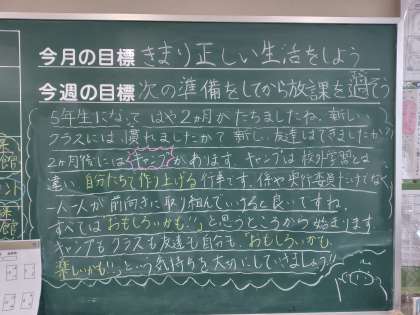 今月の目標 きまり正しい生活をしよう
今週の目標 次の準備をしてから放課を過そう
5年生になって はや2ヵ月がたちましたね。新しい
クラスには慣れましたか?新しい友達はできましたか?
2ヵ月後にはキャンプがあります。キャンプは校外学習とは
違い、自分たちで作り上げる行事です。係や実行委員だけでなく
一人一人が前向きに取り組んでいけると良いですね。
すべては"おもしろいかも!!"と思うところから始まります
キャンプもクラスも友達も自分も、"おもしろいかも、
楽しいかも"っという気持ちを大切にしていきましょう!!